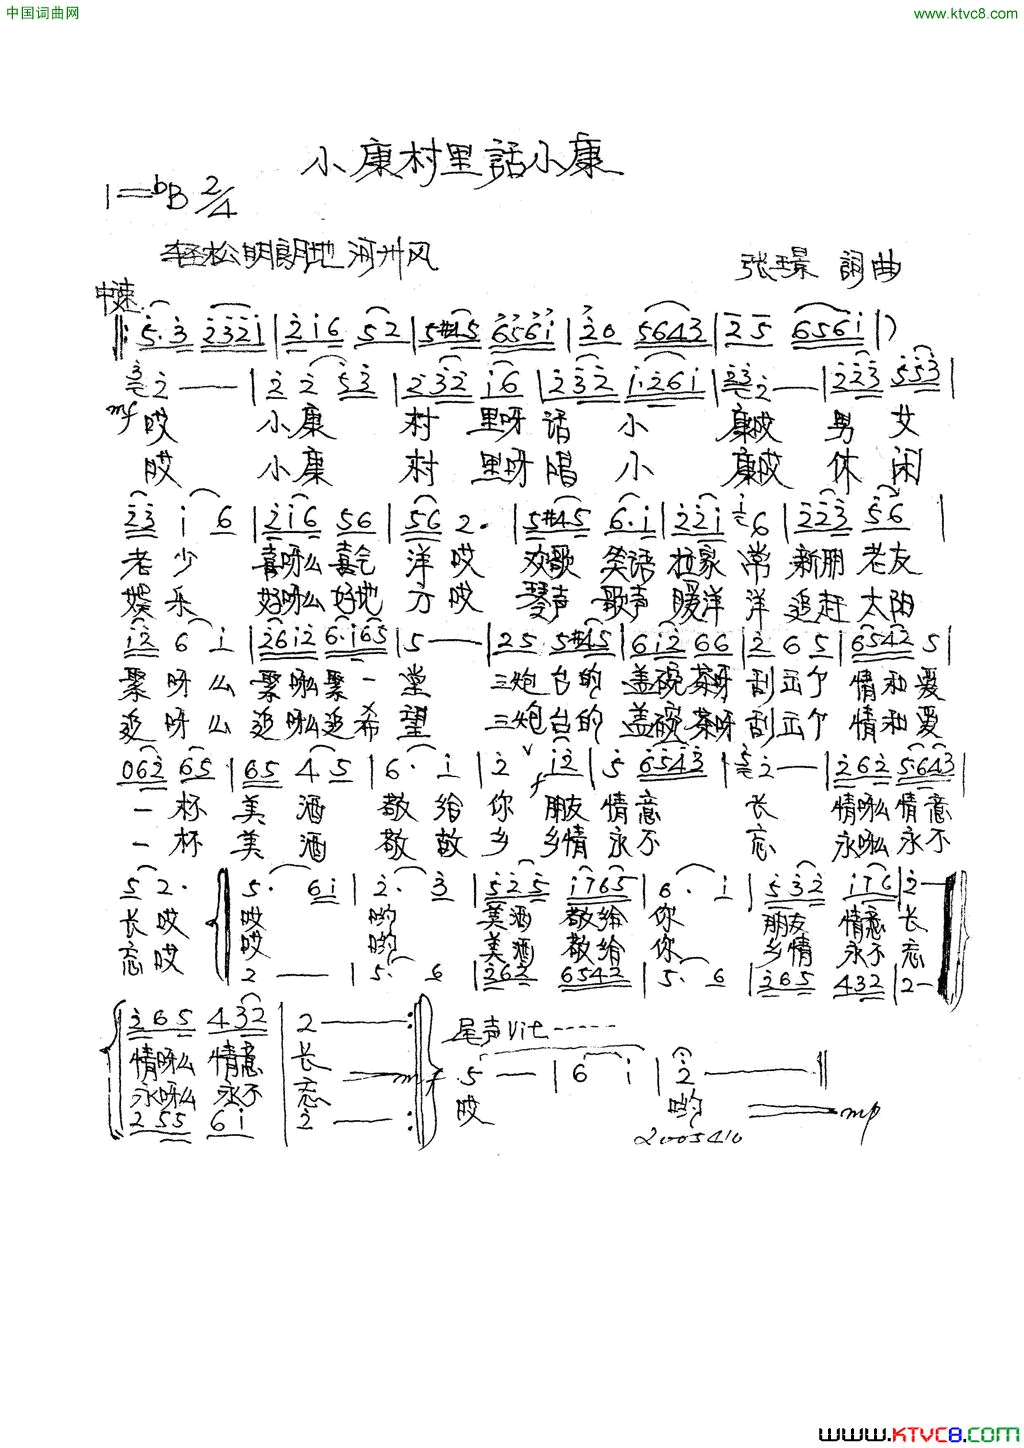 中国词曲网
www.ktvc8.com
小康村里話小康
1=bB 2/4
轻松明朗地 河州风
张璟 詞曲
中速
5·3 2321 | 216 52 | 5#45 6561 | 20 5643 | 25 6561 | )
3 2 — — | 2 2 53 | 232 16 | 232 1·261 | 23 2 — | 223 553 |
mf
哎 小康 村 里呀 话 小 康哎 男 女
哎 小康 村 里呀 唱 小 康哎 休 闲
23 1 6 | 216 56 | 56 2· | 5#45 6·1 | 221 1 6 | 223 56 |
老 少 喜呀么 喜气 洋 哎 欢歌 笑语 拉家 常 新朋 老友
娱 乐 好呀么 好地 方 哎 琴声 歌声 暖洋 洋 追赶 太阳
12 6 1 | 2612 6·165 | 5 — — | 25 5#45 | 612 66 | 2 6 5 | 6542 5 |
聚 呀 么 聚呀么聚 一 堂 三炮 台的 盖碗 茶呀 刮出个 情和爱
追 呀 么 追呀么追 希 望 三炮 台的 盖碗 茶呀 刮出个 情和爱
062 65 | 65 4 5 | 6· 1 | 2 f 12 | 5 6543 | 5 2 — | 262 5·643 |
一 杯 美 酒 敬 给 你 朋友 情意 长 情呀么 情意
一 杯 美 酒 敬 故 乡 乡情 永不 忘 永呀么 永不
5 2· 5· 61 | 2· 3 | 525 1765 | 6· 1 | 532 176 | 2 —
长 哎 哎 哟 美酒 敬给 你 朋友 情意 长
忘 哎 哎 哟 美酒 敬给 你 乡情 永不 忘
2 — — | 5· 6 | 262 6542 | 5· 6 | 265 432 | 2 —
265 432 | 2 — — :
尾声Vit-----
情呀么 情意 长
mf
5 — | 6 1 | 2 — —
永呀么 永不 忘
哎 哟
mp
255 61 | 2 — — :
2005410
www.KTVC8.com